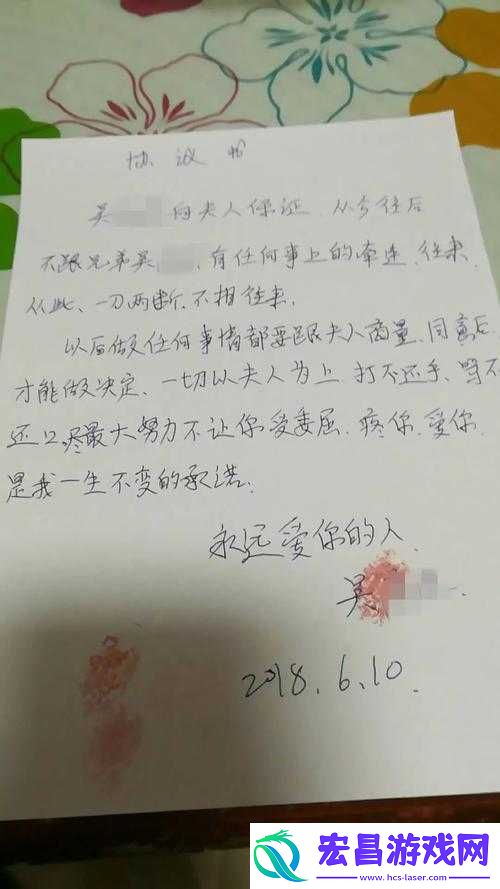 协议书
吴 向夫人保证.从今往后
不跟兄弟吴 .有任何事上的牵连.往来.
从此、一刀两断.不相往来.
以后做任何事情都要跟夫人商量.同意后
才能做决定.一切以夫人为上.打不还手、骂不
还口.尽最大努力不让你受委屈.疼你.爱你.
是我一生不变的承诺.
永远爱你的人.
吴 .
2018.6.10.
宏昌游戏网
www.hcs-laser.com